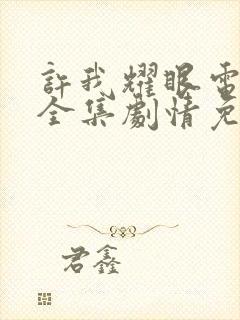 許我耀眼電
全集劇情免
君鑫